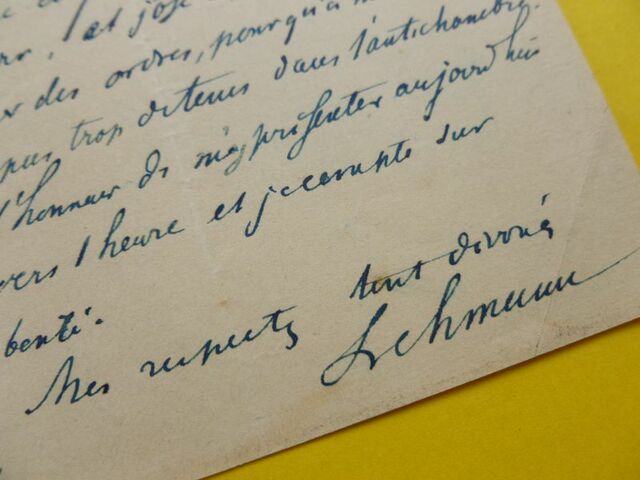 et j'ose
des ordres, pourqu'à
pas trop detenu dans l'antichambre.
l'honneur de m'y présenter aujourd'hui
vers 1 heure et je compte sur
bonté.
Mes respects tout dévoué
Lehmann